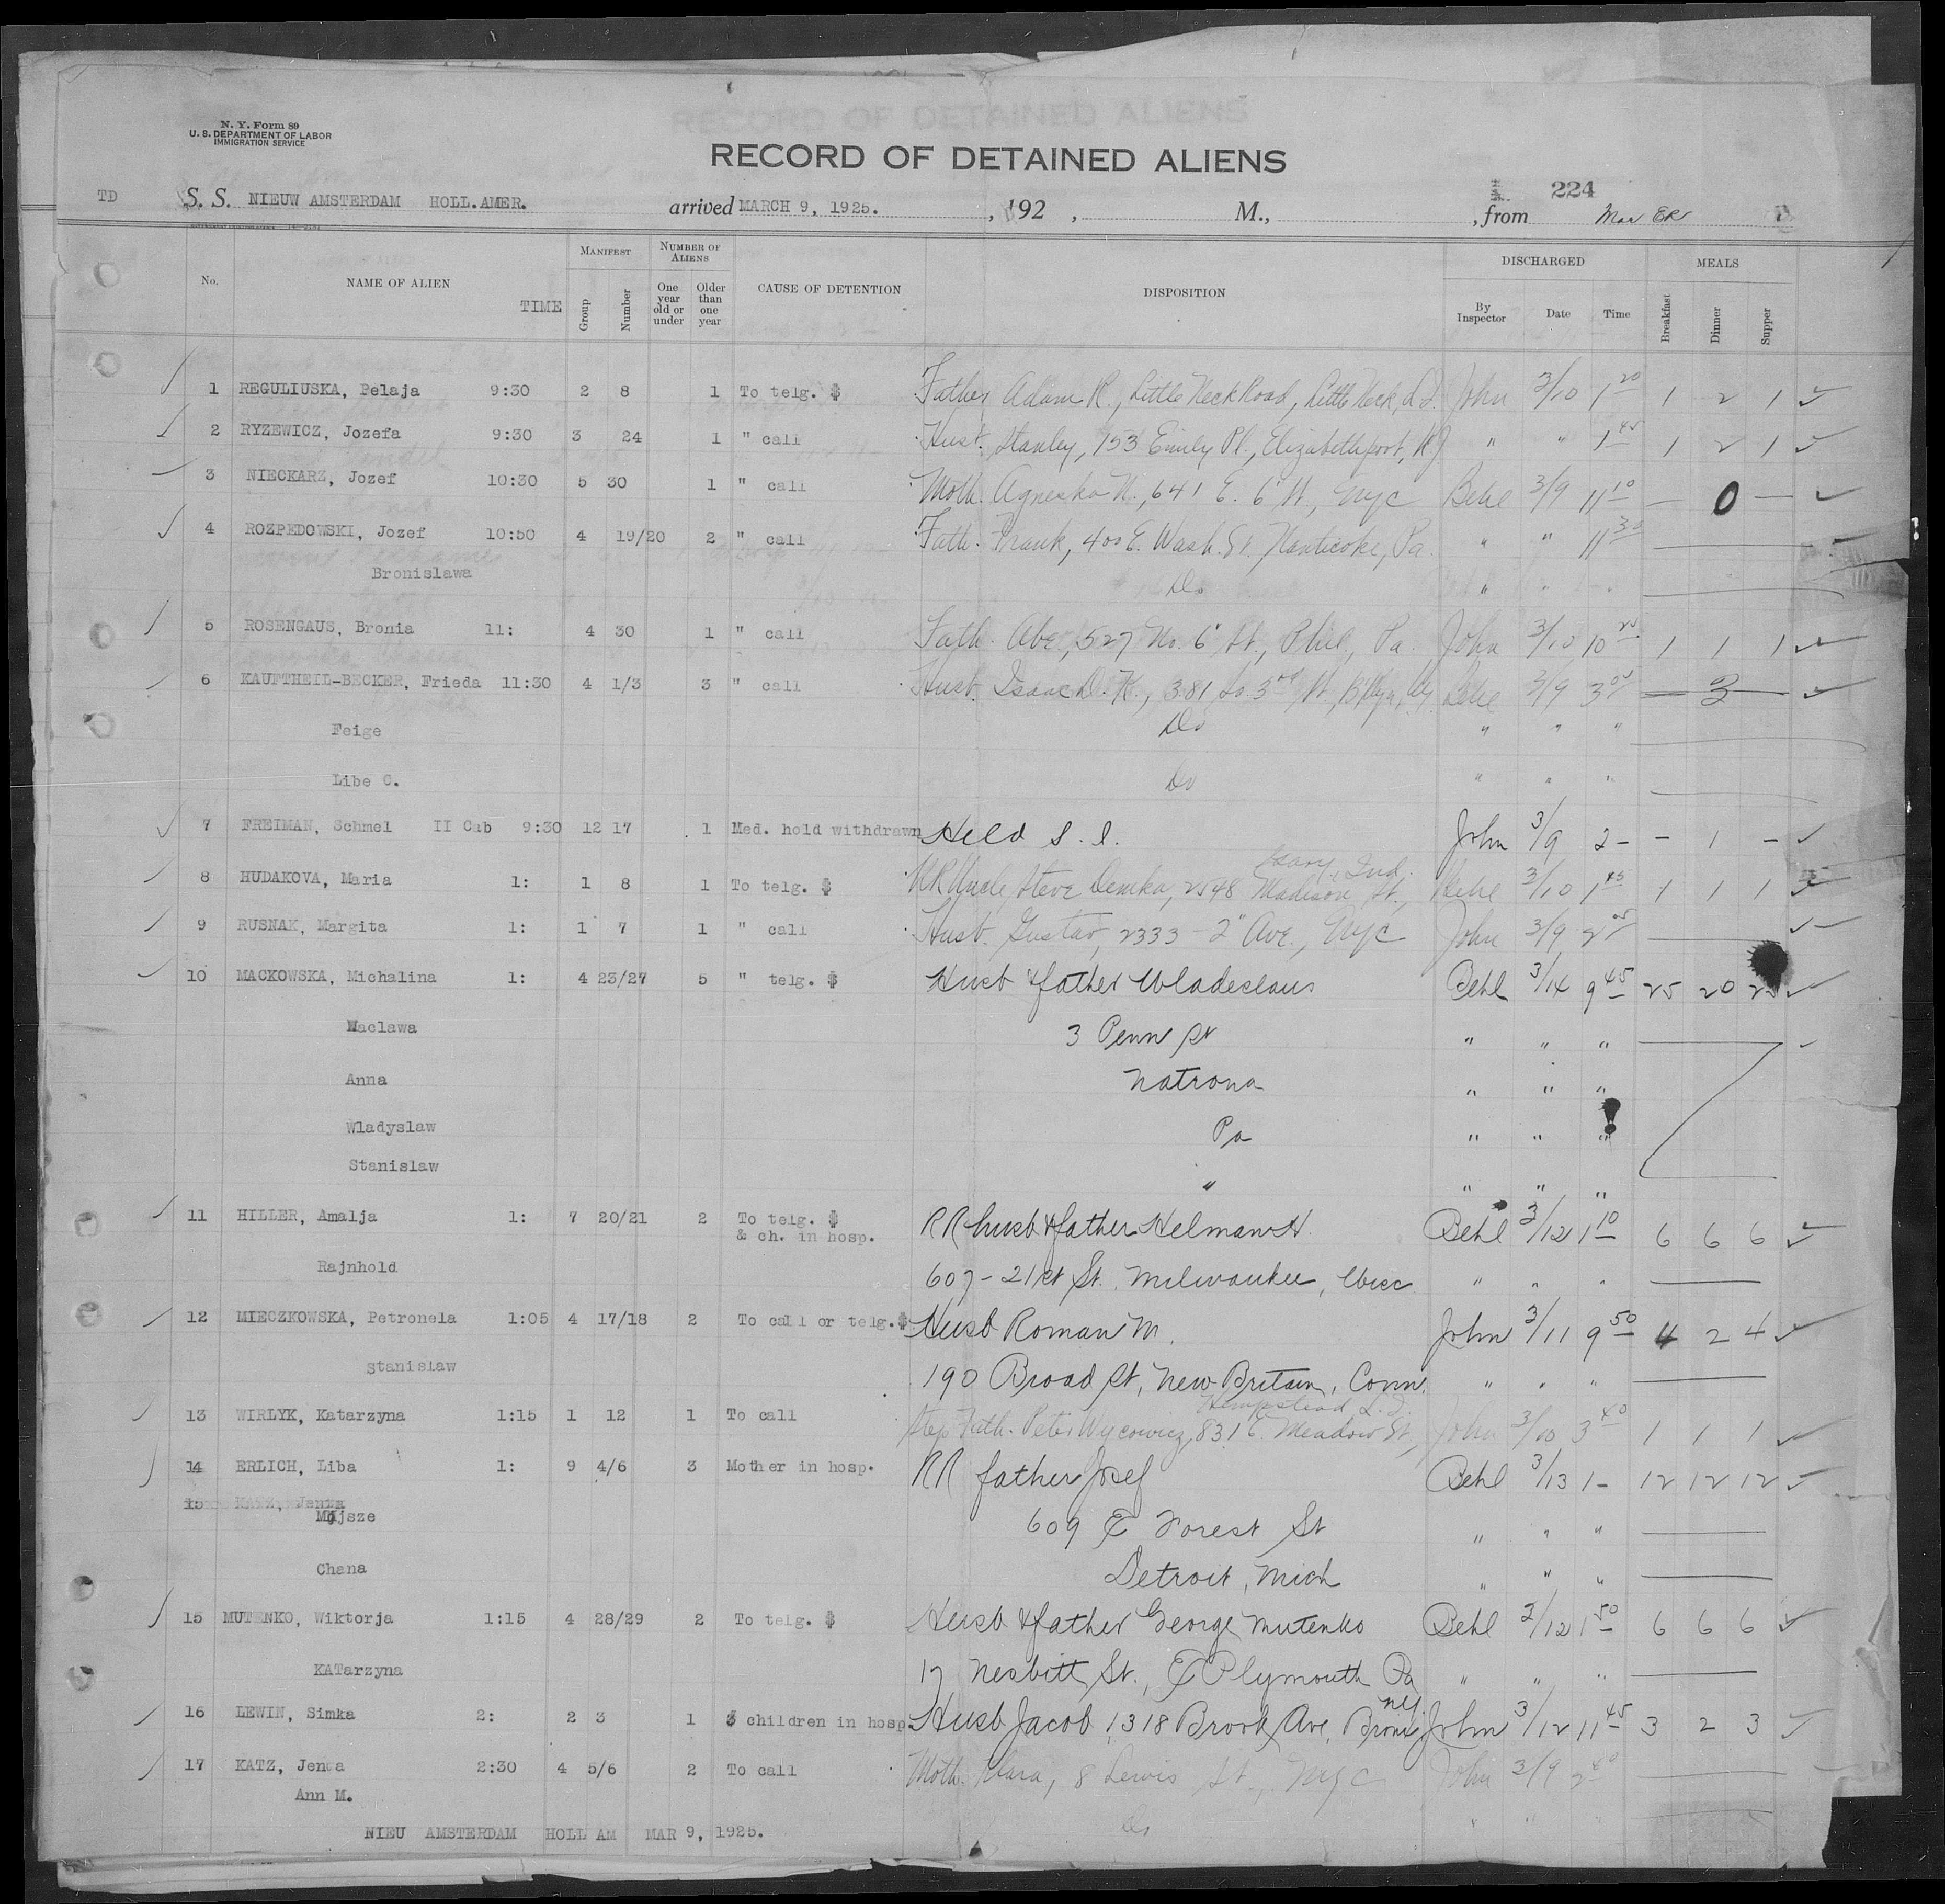 N. Y. Form 89
U. S. DEPARTMENT OF LABOR
IMMIGRATION SERVICE
RECORD OF DETAINED ALIENS
224
TD S. S. NIEUW AMSTERDAM HOLL.AMER. arrived MARCH 9, 1925. , 192 , M., , from
No. NAME OF ALIEN TIME MANIFEST Group Number NUMBER OF ALIENS One year old or under Older than one year CAUSE OF DETENTION DISPOSITION DISCHARGED By Inspector Date Time MEALS Breakfast Dinner Supper
1 REGULIUSKA, Pelaja 9:30 2 8 1 To telg. $ Father Adam R., Little Neck Road, Little Neck, L.I. John 3/10 1 20 1 2 1
2 RYZEWICZ, Jozefa 9:30 3 24 1 " call Husb. Stanley, 153 Emily Pl., Elizabethport, NJ " " 1 45 1 2 1
3 NIECKARZ, Jozef 10:30 5 30 1 " call Moth. Agneska N., 641 E. 6" St., NYC Behl 3/9 11 10 — 0 —
4 ROZPEDOWSKI, Jozef 10:50 4 19/20 2 " call Fath. Frank, 400 E. Wash. St. Nanticoke, Pa. " " 11 30
Bronislawa Do " " "
5 ROSENGAUS, Bronia 11: 4 30 1 " call Fath. Abe, 527 No. 6" St., Phil., Pa. John 3/10 10 1 1 1
6 KAUFTHEIL-BECKER, Frieda 11:30 4 1/3 3 " call Husb. Isaac D. K., 381 So. 3rd St., B'klyn, NY. Behl 3/9 3 00 — 3 —
Feige Do " " "
Libe C. Do " " "
7 FREIMAN, Schmel II Cab 9:30 12 17 1 Med. hold withdrawn Held S. I. John 3/9 2 - - 1 -
Gary, Ind.
8 HUDAKOVA, Maria 1: 1 8 1 To telg. $ RR Uncle Steve Demko, 2548 Madison St., Behl 3/10 1 45 1 1 1
9 RUSNAK, Margita 1: 1 7 1 " call Husb. Gustav, 2333 - 2" Ave., NYC John 3/9 2 05
10 MACKOWSKA, Michalina 1: 4 23/27 5 " telg. $ Husb & father Wladeslaus Behl 3/14 9 45 25 20 25
Maclawa 3 Penn St " " "
Anna Natrona " " "
Wladyslaw Pa " " "
Stanislaw " " " "
11 HILLER, Amalja 1: 7 20/21 2 To telg. $ RR husb & father Helman H. Behl 3/12 1 10 6 6 6
& ch. in hosp.
Rajnhold 607 - 21st St. Milwaukee, Wisc " " "
12 MIECZKOWSKA, Petronela 1:05 4 17/18 2 To call or telg.$ Husb Roman M. John 3/11 9 50 4 2 4
Stanislaw 190 Broad St, New Britain, Conn. " " "
Hempstead L. I.
13 WIRLYK, Katarzyna 1:15 1 12 1 To call Step Fath. Peter Wycowicz, 831 E. Meadow St, John 3/10 3 40 1 1 1
14 ERLICH, Liba 1: 9 4/6 3 Mother in hosp. RR father Josef Behl 3/13 1 - 12 12 12
15 KATZ, Jenta
Mojsze 609 E Forest St " " "
Chana Detroit, Mich " " "
15 MUTENKO, Wiktorja 1:15 4 28/29 2 To telg. $ Husb & father George Mutenko Behl 3/12 1 50 6 6 6
KATarzyna 17 Nesbitt St., E Plymouth Pa " " "
16 LEWIN, Simka 2: 2 3 1 3 children in hosp. Husb Jacob, 1318 Brook Ave, Bronx NY John 3/12 11 45 3 2 3
17 KATZ, Jenta 2:30 4 5/6 2 To call Moth. Klara, 8 Lewis St., NYC John 3/9 2 40
Ann M. Do " " "
NIEU AMSTERDAM HOLL AM MAR 9, 1925.